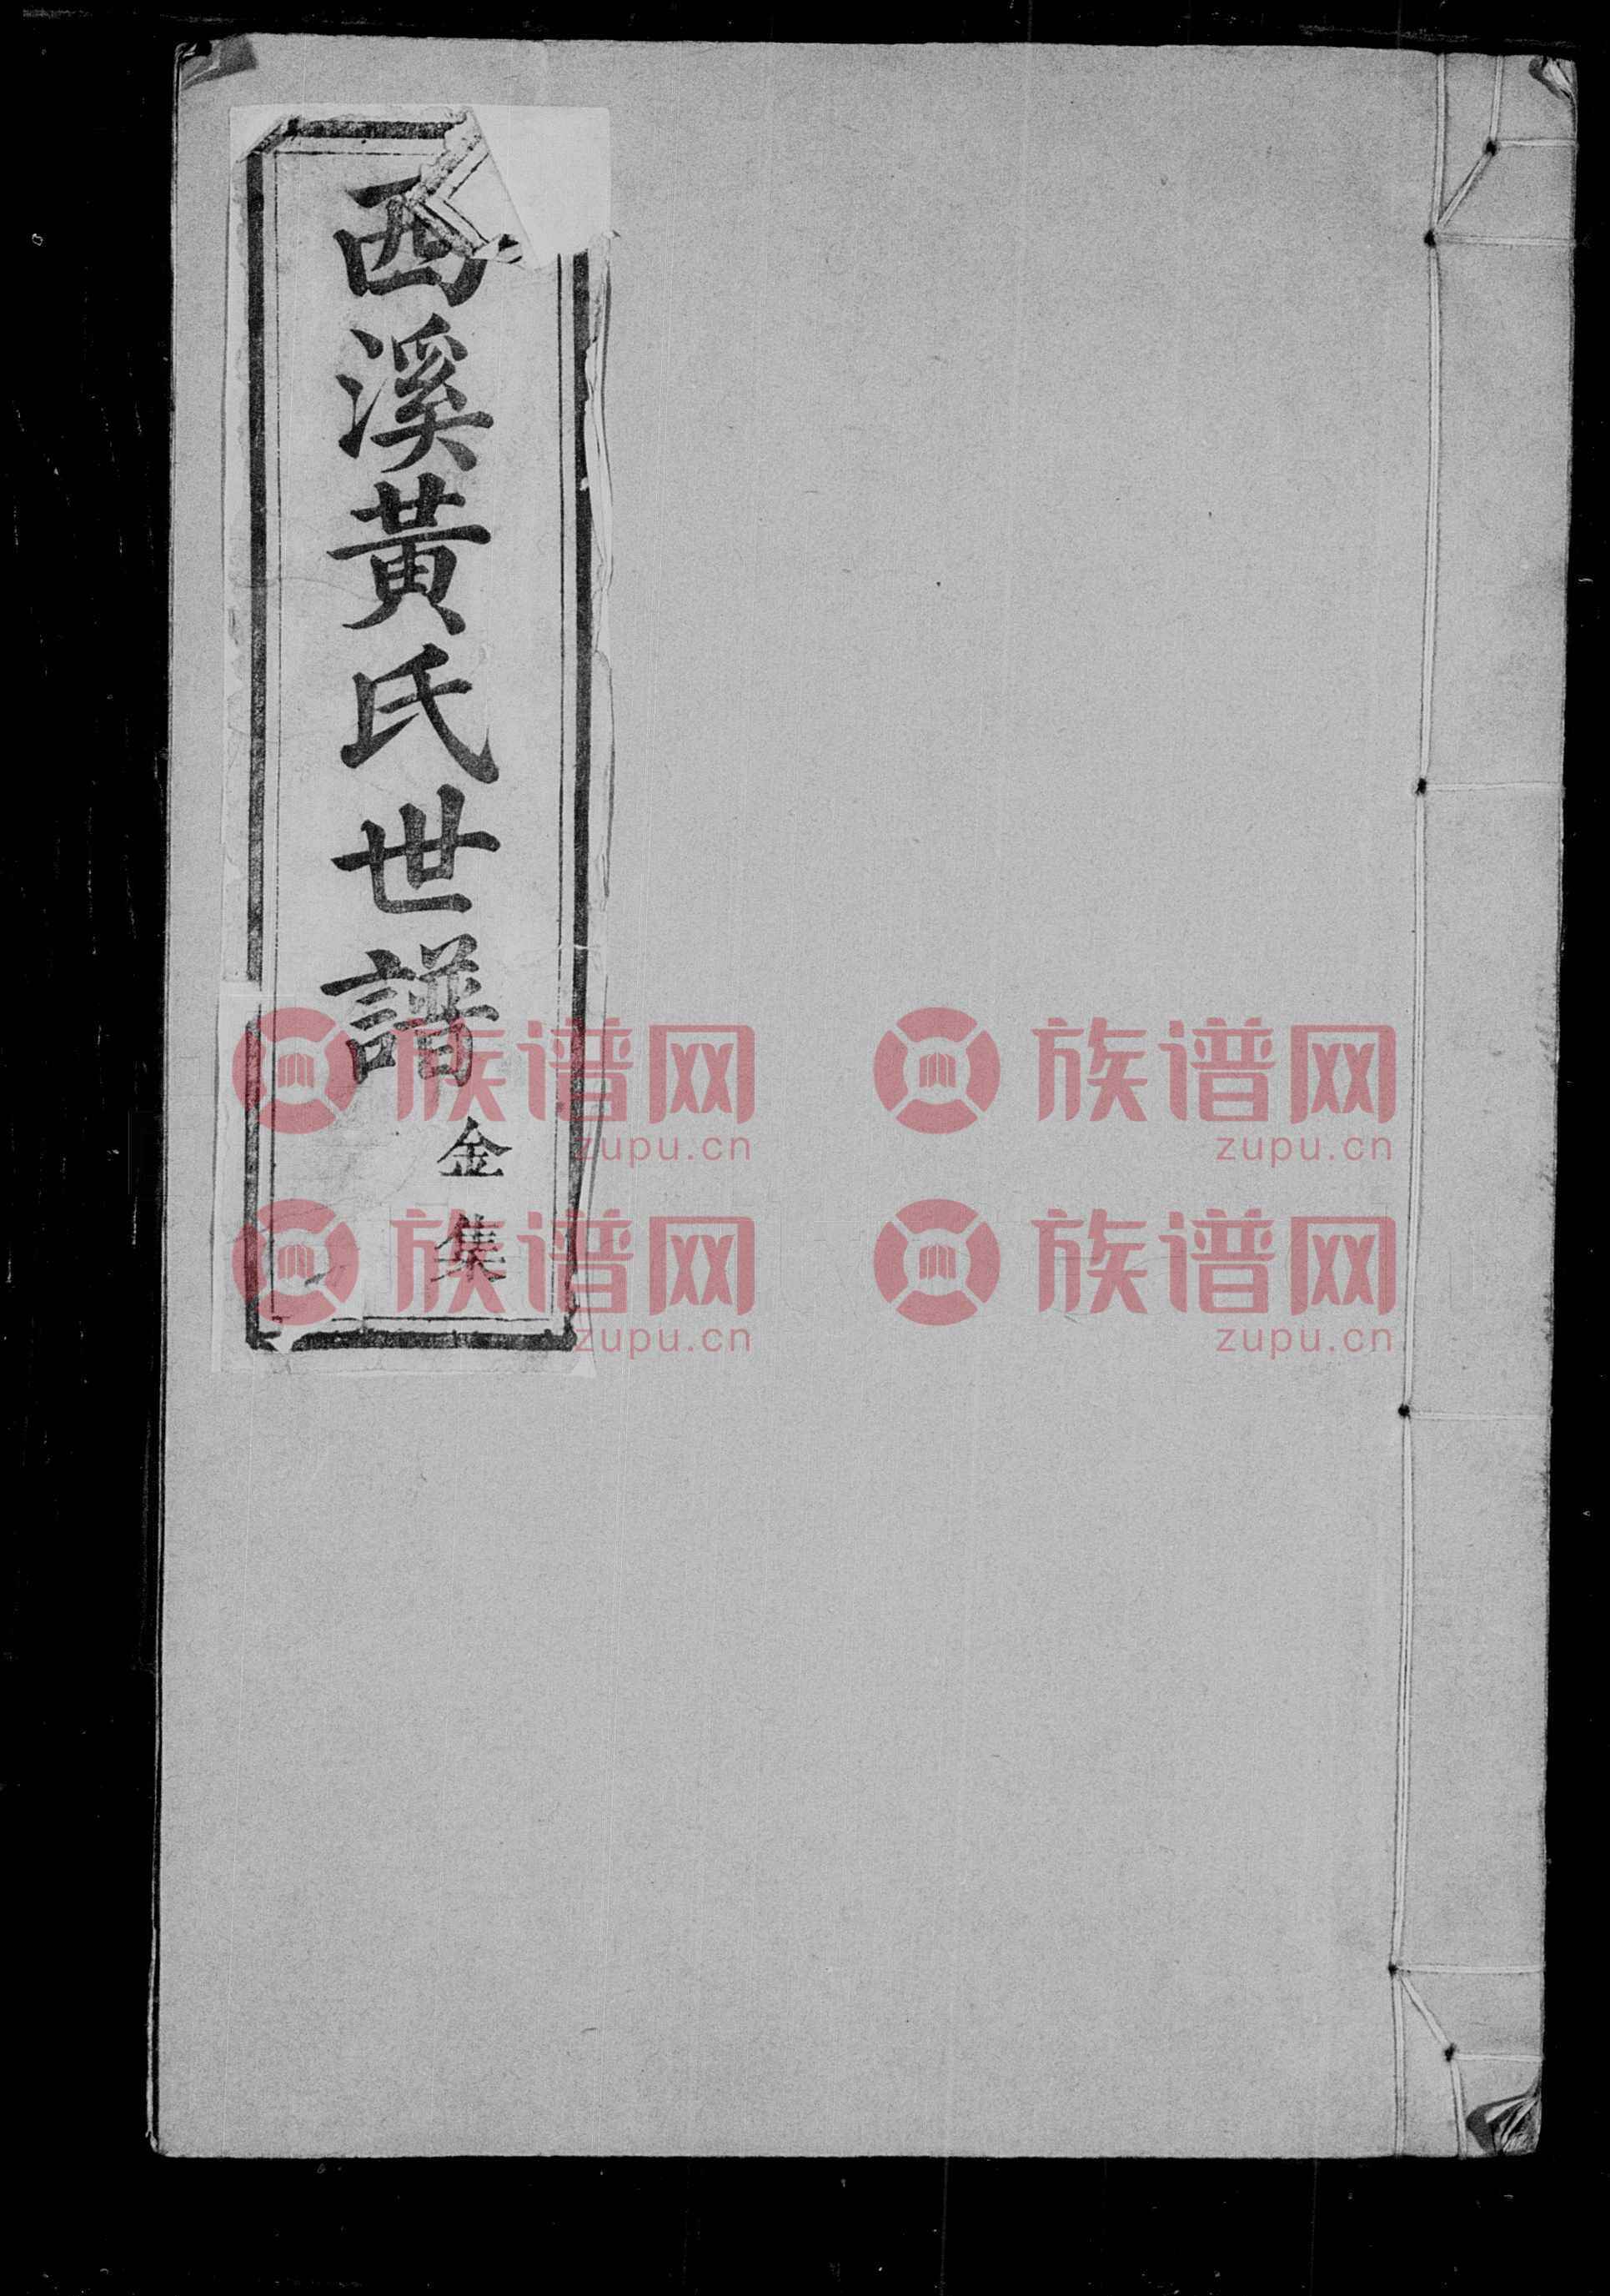 西溪黃氏世譜
金集
族谱网 族谱网
zupu.cn zupu.cn
族谱网 族谱网
zupu.cn zupu.cn